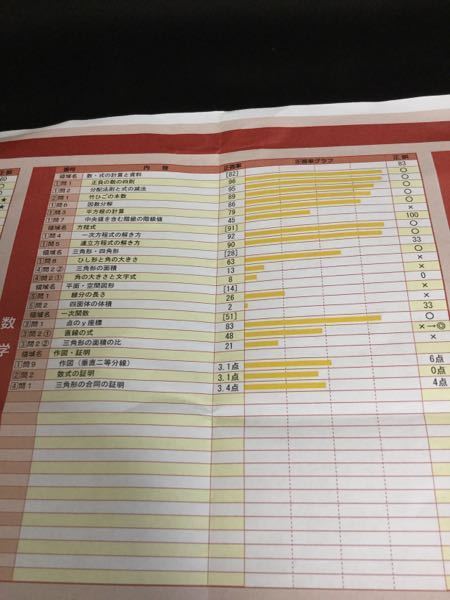 番号 内容 正答率 正答率グラフ 正誤
領域名 数・式の計算と資料 [82] 83
①問1 正負の数の四則 96 ○
①問2 分配法則と式の減法 95 ○
②問1 竹ひごの本数 89 ○
①問6 因数分解 86 ○
①問3 平方根の計算 79 ○
①問7 中央値を含む階級の階級値 45 ×
領域名 方程式 [91] 100
①問4 一次方程式の解き方 92 ○
①問5 連立方程式の解き方 90 ○
領域名 三角形・四角形 [28] 33
①問8 ひし形と角の大きさ 63 ○
④問2② 三角形の面積 13 ×
④問2① 角の大きさと文字式 8 ×
領域名 平面・空間図形 [14] 0
⑤問1 線分の長さ 26 ×
⑤問2 四面体の体積 2 ×
領域名 一次関数 [51] 33
③問1 点のy座標 83 ○
③問2① 直線の式 48 ×→◎
③問2② 三角形の面積の比 21 ×
領域名 作図・証明
①問9 作図(垂直二等分線) 3.1点 6点
②問2 数式の証明 3.1点 0点
④問1 三角形の合同の証明 3.4点 4点
数学